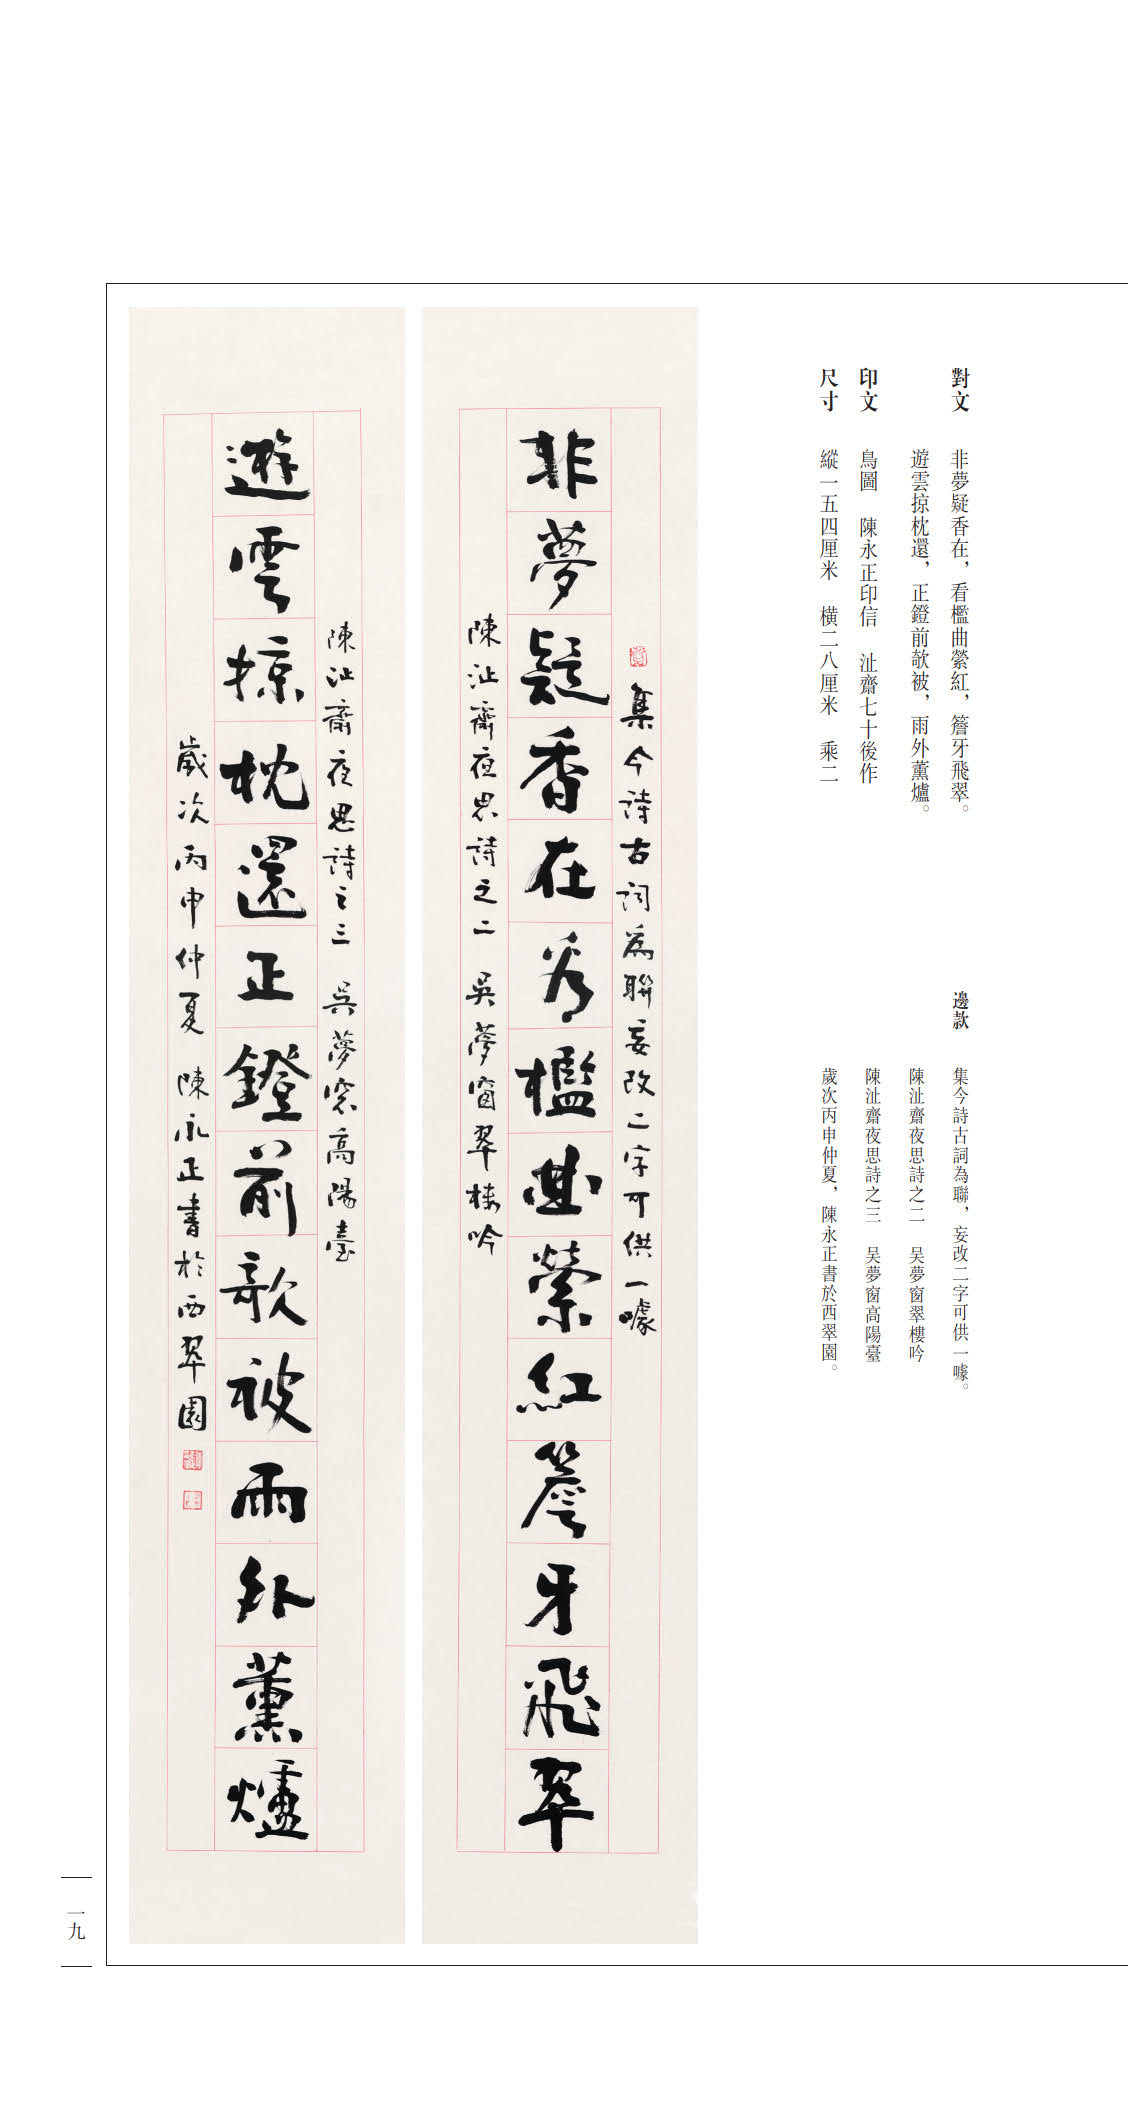 對文　非夢疑香在，看檻曲縈紅，簷牙飛翠。
遊雲掠枕還，正鐙前欹被，雨外薰爐。
印文　鳥圖　陳永正印信　沚齋七十後作
尺寸　縱一五四厘米　橫二八厘米　乘二
邊款　集今詩古詞為聯，妄改二字可供一噱。
陳沚齋夜思詩之二　吴夢窗翠樓吟
陳沚齋夜思詩之三　吴夢窗高陽臺
歲次丙申仲夏，陳永正書於西翠園。
集今詩古詞為聯妄改二字可供一噱
非夢疑香在看檻曲縈紅簷牙飛翠
陳沚齋夜思詩之二　吳夢窗翠樓吟
陳沚齋夜思詩之三　吳夢窗高陽臺
遊雲掠枕還正鐙前欹被雨外薰爐
歲次丙申仲夏　陳永正書於西翠園
一九